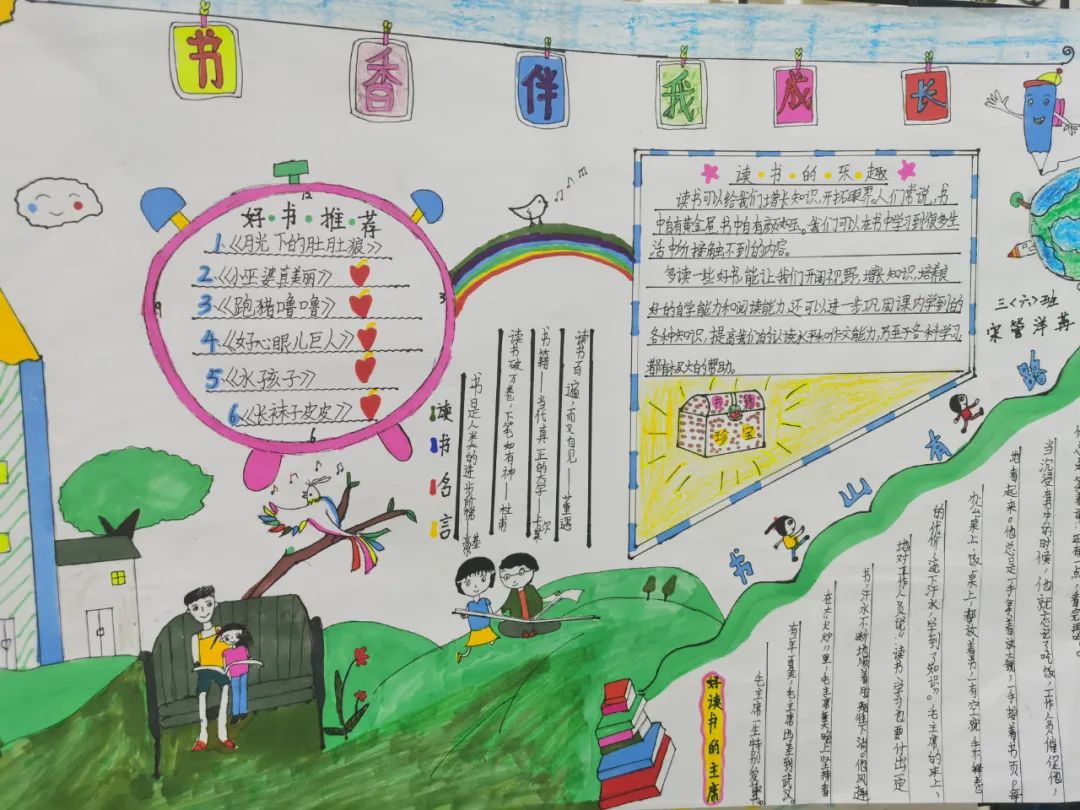 书香伴我成长
好·书·推·荐
1.《月光下的肚肚狼》
2.《小巫婆真美丽》
3.《跑猪噜噜》
4.《好心眼儿巨人》
5.《水孩子》
6.《长袜子皮皮》
12
3
6
9
读·书·的·乐·趣
读书可以给我们增长知识,开拓眼界。人们常说,书
中自有黄金屋,书中自有颜如玉。我们可以在书中学习到很多生
活中接触不到的内容。
多读一些好书,能让我们开阔视野,增长知识,培养良
好的自学能力和阅读能力,还可以进一步巩固课内学到的
各种知识,提高我们的认读水平和作文能力,乃至于各科学习,
都有极大的帮助。
书籍
珍宝
三〈六〉班
宋管洋苒
读书名言
读书百遍,而义自见——董遇
书籍——当代真正的大学——卡莱尔
读书破万卷,下笔如有神——杜甫
书是人类的进步阶梯 高尔基
书山本路
当沉浸在书中的时候,他就忘记了吃饭,工作人员催促他,
地看起来。他总是一手拿着放大镜,一手按着书页。每
办公桌上、饭桌上,都放着书,一有空就手不释卷
的代价,流下汗水,学到了知识"。毛主席的床上、
地对工作人员说:"读书学习也要付出一定
书,汗水不断地顺着脸颊往下淌。他风趣
在大"火炉"里,毛主席晚上坚持看
有年夏天,毛主席到武汉。
毛主席一生特别爱读书。
好读书的主席